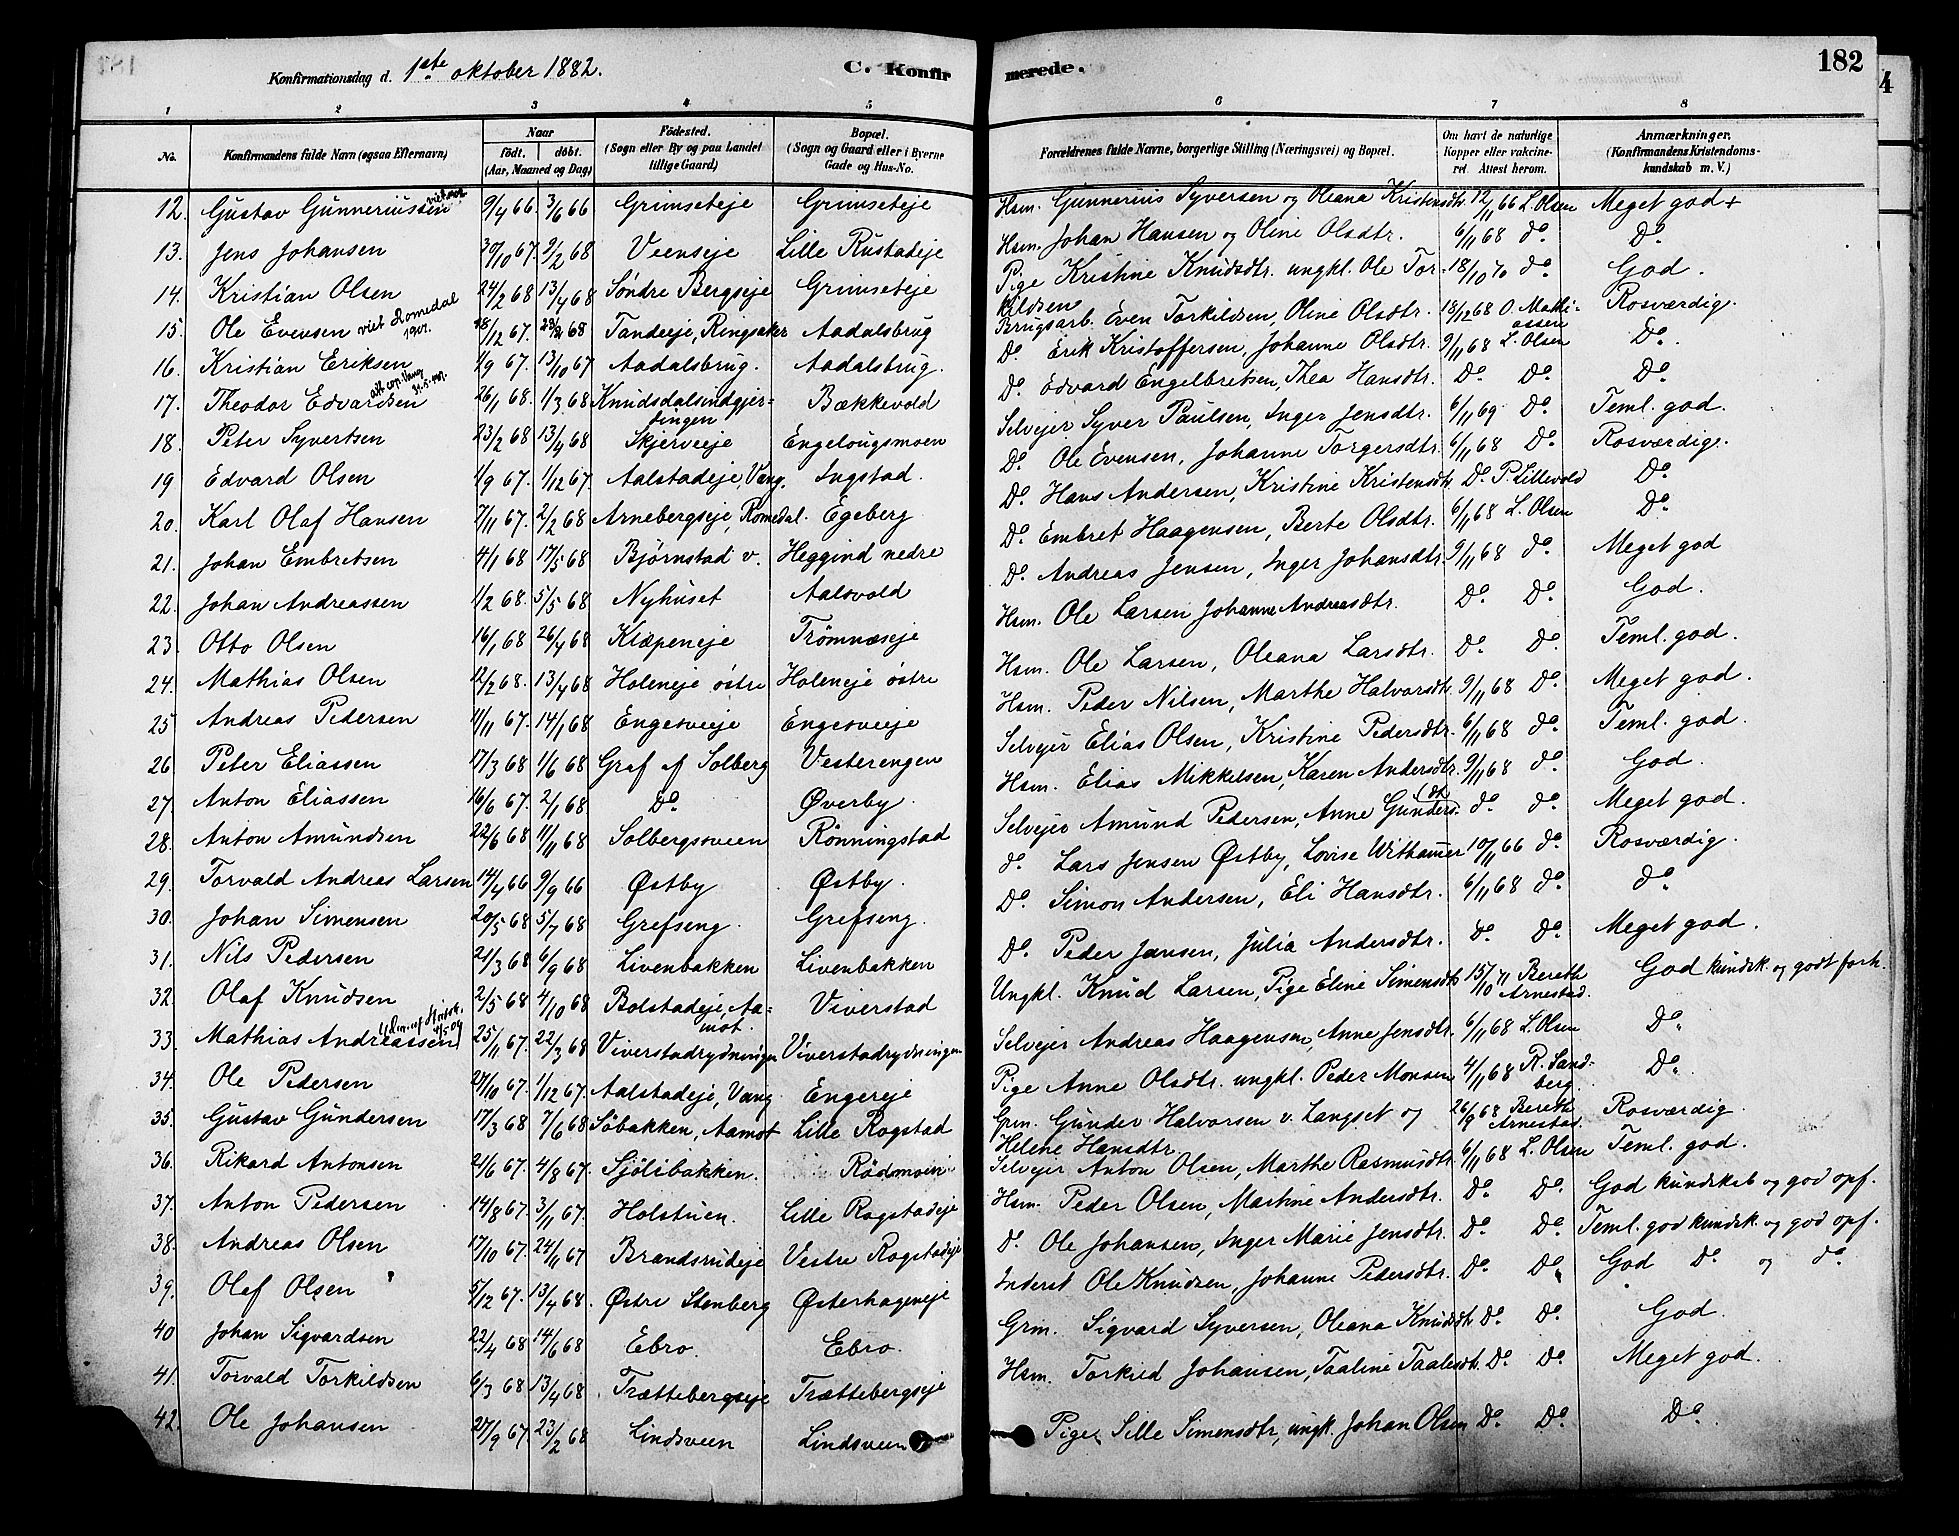 Konfirmationsdag d. 1ste oktober 1882.
C. Konfirmerede.
182
1 2 3 4 5 6 7 8
No.
Konfirmandens fulde Navn (ogsaa Efternavn)
Naar
födt. döbt.
(Aar, Maaned og Dag)
Födested.
(Sogn eller By og paa Landet
tillige Gaard)
Bopæl.
(Sogn og Gaard eller i Byerne
Gade og Hus-No.
Forældrenes fulde Navne, borgerlige Stilling (Næringsvei) og Bopæl.
Om havt de naturlige
Kopper eller vakcine-
ret. Attest herom.
Anmærkninger.
(Konfirmandens Kristendoms-
kundskab m. V.)
12. Gustav Gunneriussen 9/4 66. 3/6 66 Grimseteje Grimseteje Hsm. Gunnerius Syversen og Oleana Kristensdtr. 12/11 66 L. Olsen Meget god +
13. Jens Johansen 30/10 67. 9/2 68 Veenseje Lille Rustadeje Hsm. Johan Hansen og Oline Olsdtr. 6/11 68 do. Do.
14. Kristian Olsen 24/2 68 13/4 68 Søndre Bergseje Grimseteje Pige Kristine Knudsdtr. ungkl. Ole Tor-kildsen 18/10 70 do. God.
15. Ole Evensen viet Romedal 1901. 18/12 67. 68 Tandeeje, Ringsaker Aadalsbrug Brugsarb. Even Torkildsen, Oline Olsdtr. 18/12 68 O. Mathi-assen Rosværdig.
16. Kristian Eriksen 1/9 67. 13/10 67 Aadalsbrug. Aadalsbrug. Do. Erik Kristoffersen, Johanne Olsdtr. 9/11 68 L. Olsen Do.
17. Theodor Edvardsen 26/1 68. 1/3 68 Knudsdalsindgjer-dingen Bækkevold Do. Edvard Engelbretsen, Thea Hansdtr. Do. Do. Do.
18. Peter Syvertsen 23/2 68 13/4 68 Skjerveeje Engelougsmoen Selvejer Syver Paulsen, Inger Jensdtr. 6/11 69 Do. Teml. god.
19 Edvard Olsen 1/9 67. 1/12 67. Aalstadeje, Vang. Ingstad. Do. Ole Evensen, Johanne Torgersdtr. 6/11 68 Do. Rosværdig.
20. Karl Olaf Hansen 7/11 67. 2/2 68 Arnebergseje, Romedal. Egeberg. Do. Hans Andersen, Kristine Kristensdtr. Do. P. Lillevold Do.
21. Johan Embretsen 4/1 68 17/5 68 Bjørnstad v. Heggind nedre Do. Embret Haagensen, Berte Olsdtr. 6/11 68 L. Olsen Do.
22. Johan Andreassen 1/2 68. 5/5 68 Nyhuset Aalsvold Do. Andreas Jensen, Inger Johansdtr. 9/11 68 do. Meget god
23. Otto Olsen 16/1 68 26/4 68 Klæpeneje Trømnæseje Hsm. Ole Larsen Johanne Andreasdtr. Do. Do. God.
24. Mathias Olsen 12/2 68. 13/4 68 Holeneje østre Holeneje østre Hsm. Ole Larsen, Oleana Larsdtr. Do. Do. Teml. god.
25 Andreas Pedersen 11/11 67. 14/1 68 Engesveeje Engesveeje Hsm. Peder Nilsen, Marthe Halvorsdtr. 9/11 68 Do. Meget god.
26 Peter Eliassen 17/3 68 1/6 68 Graf af Solberg Vesterengen Selvejer Elias Olsen, Kristine Pedersdtr. 6/11 68 do. Teml. god.
27. Anton Eliassen 16/6 67. 2/1 68 Do. Øverby. Hsm. Elias Mikkelsen, Karen Andersdtr. 9/11 68 do. God.
28. Anton Amundsen 22/6 68 1/11 68 Solbergsveen Rönningstad Selvejer Amund Pedersen, Anne Gundersdtr. do. do. Meget god.
29. Torvald Andreas Larsen 14/4 66 9/9 66 Østby Østby. do. Lars Jensen Østby, Lovise Withauser 10/11 66 do. Rosværdig.
30. Johan Simensen 20/5 68 5/7 68 Grefseng. Grefseng. Do. Simon Andersen, Eli Hansdtr. 6/11 68 do. do.
31. Nils Pedersen 21/3 68 6/9 68 Livenbakken Livenbakken Do. Peder Jansen, Julia Andersdtr. do. Do. Meget god.
32. Olaf Knudsen 2/5 68 4/10 68 Bolstadeje, Aa-mot. Viverstad Ungkl. Knud Larsen, Pige Eline Simensdtr. 15/10 71 Bereth Arnestad. God kundsk. og godt forh.
33. Mathias Andreassen 25/11 67. 22/3 68 Viverstadrydningen Viverstadrydningen Selvejer Andreas Haagensen, Anne Jensdtr. 6/11 68 L. Olsen Do.
34. Ole Pedersen 27/10 67. 1/12 67. Aalstadeje, Vang Engereje Pige Anne Olsdtr. ungkl. Peder Monsen 4/11 68 R. Sand-berg. Do.
35. Gustav Gundersen 17/3 68 7/6 68 Söbakken, Aamot Lille Rogstad Grm. Gunder Halvorsen v. Langset og Helene Hansdtr. 26/9 68 Bereth Arnestad. Rosværdig.
36. Rikard Antonsen 21/6 67. 4/8 67. Sjölibakken. Rödmoen Selvejer Anton Olsen, Marthe Rasmusdtr. 6/11 68 L. Olsen Teml. god.
37. Anton Pedersen 14/8 67. 3/11 67. Holstuen. Lille Rogstadeje Hsm. Peder Olsen, Martine Andersdtr. Do. Do. God kundskab og god opf.
38. Andreas Olsen 17/10 67. 24/11 67 Brandsrudeje Vestre Rogstadeje D. Ole Johansen, Inger Marie Jensdtr. Do. Do. Teml. god kundsk. og god opf.
39. Olaf Olsen 5/12 67. 13/4 68. Østre Stenberg Østerhageneje Inderst Ole Knudsen, Johanne Pedersdtr. Do. Do. God Do. og do.
40 Johan Sigvardsen 22/4 68 14/6 68 Ebro. Ebro. Grm. Sigvard Syversen, Oleana Knudsdtr. Do. Do. God.
41. Torvald Torkildsen 6/3 68 13/4 68. Trættebergseje Trættebergseje Hsm. Torkild Johansen, Taaline Taalesdtr. Do. Do. Meget god.
42. Ole Johansen 27/9 67. 23/2 68 Lindsveen Lindsveen Pige Sille Simensdtr, ungk. Johan Olsen Do. Do. Do.